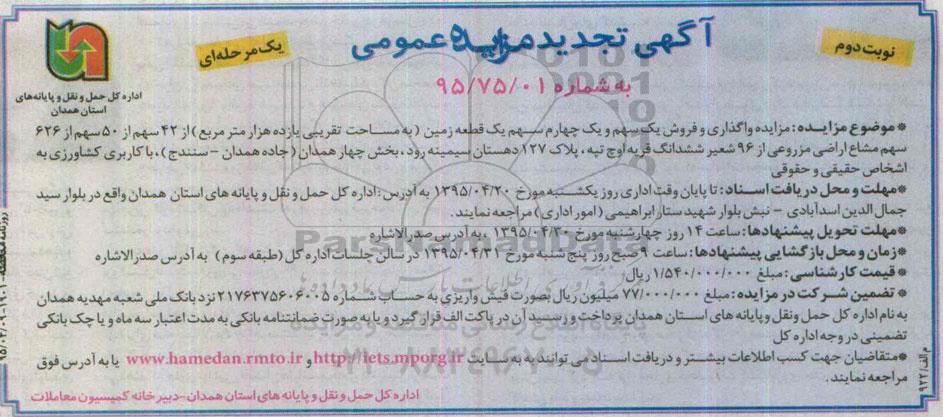 آگهی تجدید مزایده عمومی
نوبت دوم
یک مرحله‌ای
به شماره ۹۵/۷۵/۰۱
اداره کل حمل و نقل و پایانه‌های
استان همدان
* موضوع مزایده: مزایده واگذاری و فروش یک سهم و یک چهارم سهم یک قطعه زمین (به مساحت تقریبی یازده هزار متر مربع) از ۴۲ سهم از ۵۰ سهم از ۶۲۶
سهم مشاع اراضی مزروعی از ۹۶ شعیر ششدانگ قریه اوچ تپه، پلاک ۱۲۷ دهستان سیمینه رود، بخش چهار همدان (جاده همدان - سنندج)، با کاربری کشاورزی به
اشخاص حقیقی و حقوقی
* مهلت و محل دریافت اسناد: تا پایان وقت اداری روز یکشنبه مورخ ۱۳۹۵/۰۴/۲۰ به آدرس: اداره کل حمل و نقل و پایانه های استان همدان واقع در بلوار سید
جمال الدین اسدآبادی - نبش بلوار شهید ستار ابراهیمی (امور اداری) مراجعه نمایند.
* مهلت تحویل پیشنهادها: ساعت ۱۴ روز چهارشنبه مورخ ۱۳۹۵/۰۴/۳۰، به آدرس صدرالاشاره
* زمان و محل بازگشایی پیشنهادها: ساعت ۹ صبح روز پنج شنبه مورخ ۱۳۹۵/۰۴/۳۱ در سالن جلسات اداره کل (طبقه سوم) به آدرس صدرالاشاره
* قیمت کارشناسی: مبلغ ۱/۵۴۰/۰۰۰/۰۰۰ ریال
* تضمین شرکت در مزایده: مبلغ ۷۷/۰۰۰/۰۰۰ میلیون ریال بصورت فیش واریزی به حساب شماره ۲۱۷۶۳۷۵۶۰۶۰۰۵ نزد بانک ملی شعبه مهدیه همدان
به نام اداره کل حمل ونقل و پایانه های استان همدان پرداخت و رسید آن در پاکت الف قرار گیرد و یا به صورت ضمانتنامه بانکی به مدت اعتبار سه ماه و یا چک بانکی
تضمینی در وجه اداره کل
* متقاضیان جهت کسب اطلاعات بیشتر و دریافت اسناد می توانند به به سایت http://iets.mporg.ir و www.hamedan.rmto.ir یا به آدرس فوق
مراجعه نمایند.
اداره کل حمل و نقل و پایانه های استان همدان - دبیرخانه کمیسیون معاملات
م الف/۹۲۲
ParsNamadData
۰۲۱-۸۸۳۴۹۶۷۰-۵